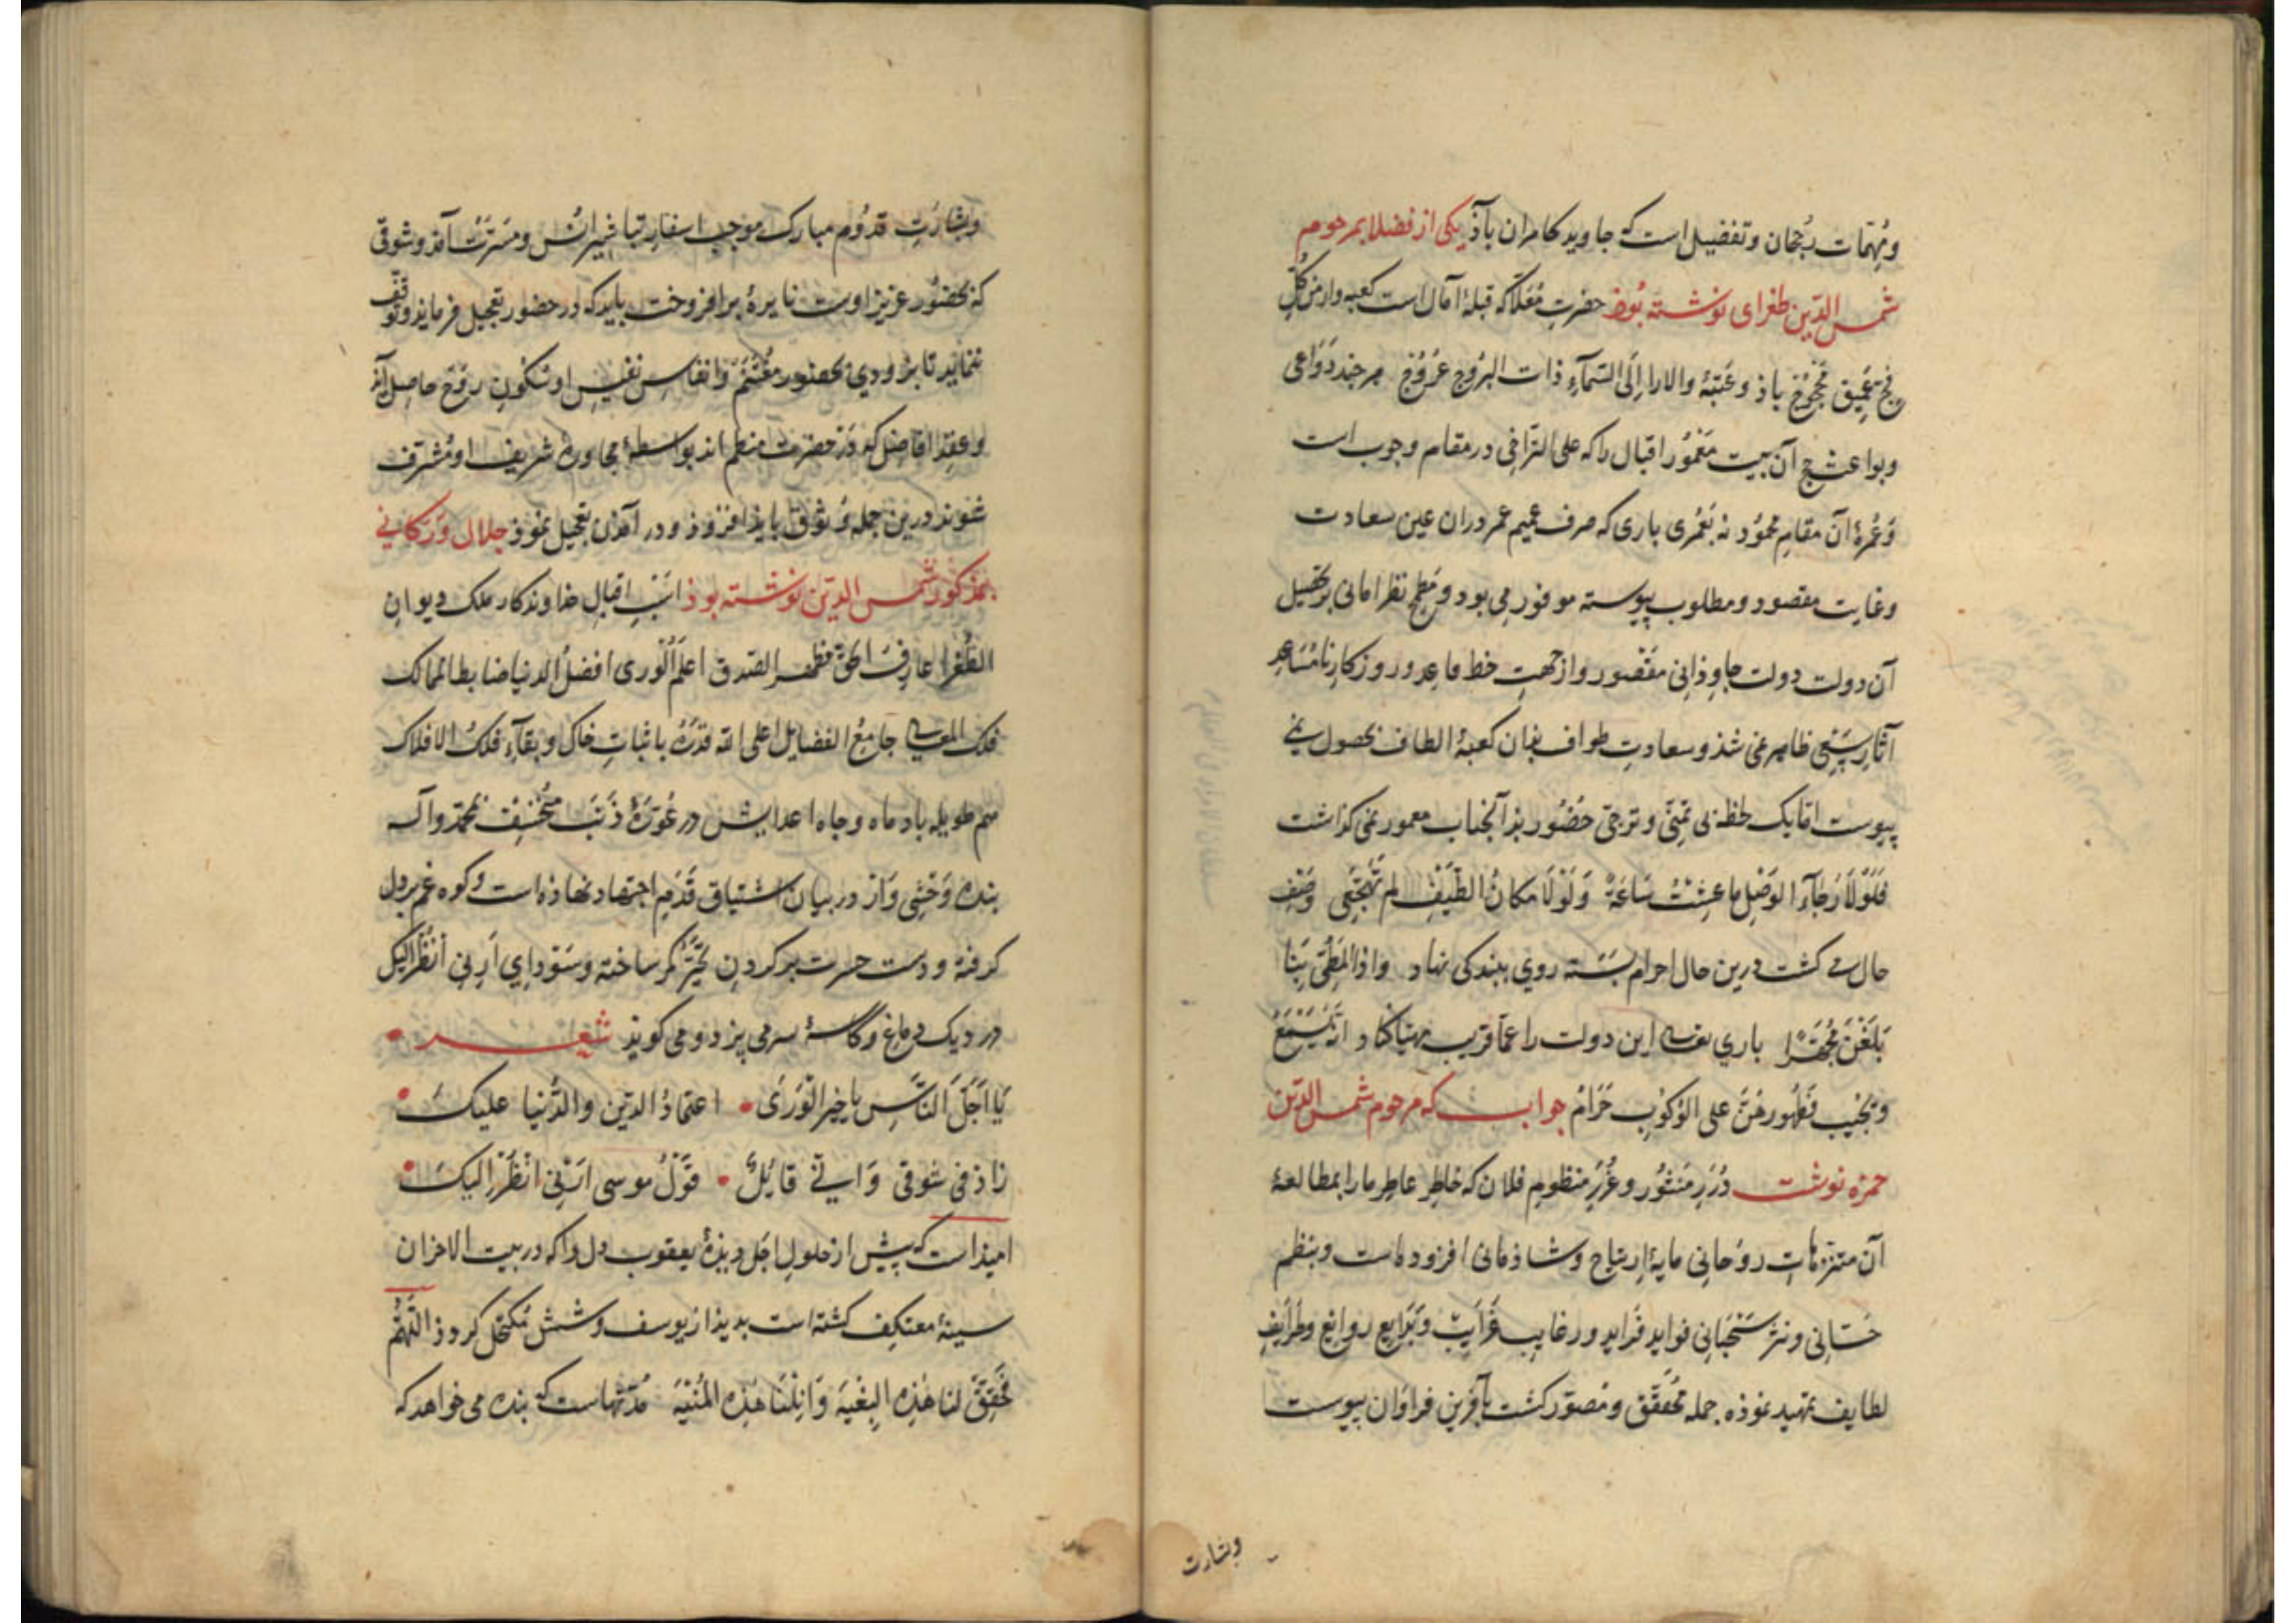 ومهمات رجحان وتفضیل است که جاوید کامران باذ یکی از فضلا بمرحوم
شمس الدین طغرای نوشته بوذ حضرت معلا که قبلۀ آمال است کعبه وار من کل
فج عمیق محجوج باذ و عتبۀ والارا الی السمآء ذات البروج عروج هرچند دواعی
وبواعث حج آن بیت معمور اقبال را که علی التراخی در مقام وجوب است
وعمرۀ آن مقام محمود نه بعمری باری که صرف عمیم عمر دران عین سعادت
وغایت مقصود ومطلوب پیوسته موفور می بود و مطمح نظر امانی بر تحصیل
آن دولت دولت جاوذانی مقصور واز جهت خط ما عد ور روزکار نامساعد
آثار سعی ظاهر نمی شذ وسعادت طواف بذان کعبۀ الطاف بحصول نمی
پیوست اما یک لحظه بی تمنی وترجی حضور بذ آنجناب معمور نمی کذاشت
فلولا رجآء الوصل ما عشت ساعة ولولا مکان الطیف لم تهجعی وصف
حال می کشت درین حال احرام بسته روی ببندکی نهاد واذا المطی بنا
بلغن محمدا باری تعالی این دولت را عما قریب مهیا کناد انه یسمع
ویجیب فظهورهن علی الرکوب حرام جواب که مرحوم شمس الدین
حمزه نوشت درر منثور وغرر منظوم فلان که خاطر عاطر ما را بمطالعۀ
آن متنزهات روحانی مایۀ ارتیاح وشاذمانی افزوده است وبنظم
حسانی ونثر سحبانی فواید فراید ورغایب غرایب وبدایع روایع وطرایف
لطایف تمهید نموذه جمله محقق ومصور کشت بآفرین فراوان پیوست
وبشارت
وبشارت قدوم مبارک موجب اسفار تباشیر انس ومسرت آمذ وشوقی
که بحضور عزیز اوست نایرۀ برافروخت باید که در حضور تعجیل فرمایذ وتوقف
ننماید تا بزودی بحضور مغتنم وانفاس نفیس او سکون روح حاصل آید
وعقد افاضل که درحضرت منظم اند بواسطۀ مجاورۀ شریف او مشرف
شوند درین جمله وثوق باید افزوذ و در آمذن تعجیل نموذ جلال ورکانی
بمذکور شمس الدین نوشته بوذ اسب اقبال خداوندکار ملک دیوان
الطغرا عارف الحق مظهر الصدق اعلم الوری افضل الدنیا ضابط الممالک
فلک المعالی جامع الفضایل اعلی الله قدره با ثبات خاک وبقآء فلک الافلاک
هم طویله باد ماه وجاه اعدایش در عقدۀ ذنب منخسف بمحمد وآله
بنده وحشی وار در بیان اشتیاق قدم اجتهاد نهاذه است وکوه غم بر دل
کرفته ودست حسرت بر کردن تحیر کمر ساخته وسودای ارنی انظر الیک
در دیک دماغ وکاسۀ سر می پزد ومی کوید شعر
یا اجل الناس یا خیر الوری اعتماد الدین والدنیا علیک
زاذ فی شوقی وانی قایل قول موسی ارنی انظر الیک
امیذ است که پیش از حلول اجل دیذۀ یعقوب دل را که در بیت الاحزان
سینه معتکف کشته است بدیذار یوسف وشش مکتحل کردذ اللهم
حقق لنا هذه البغیة وانلنا هذه المنیة مدتهاست که بنده می خواهد که